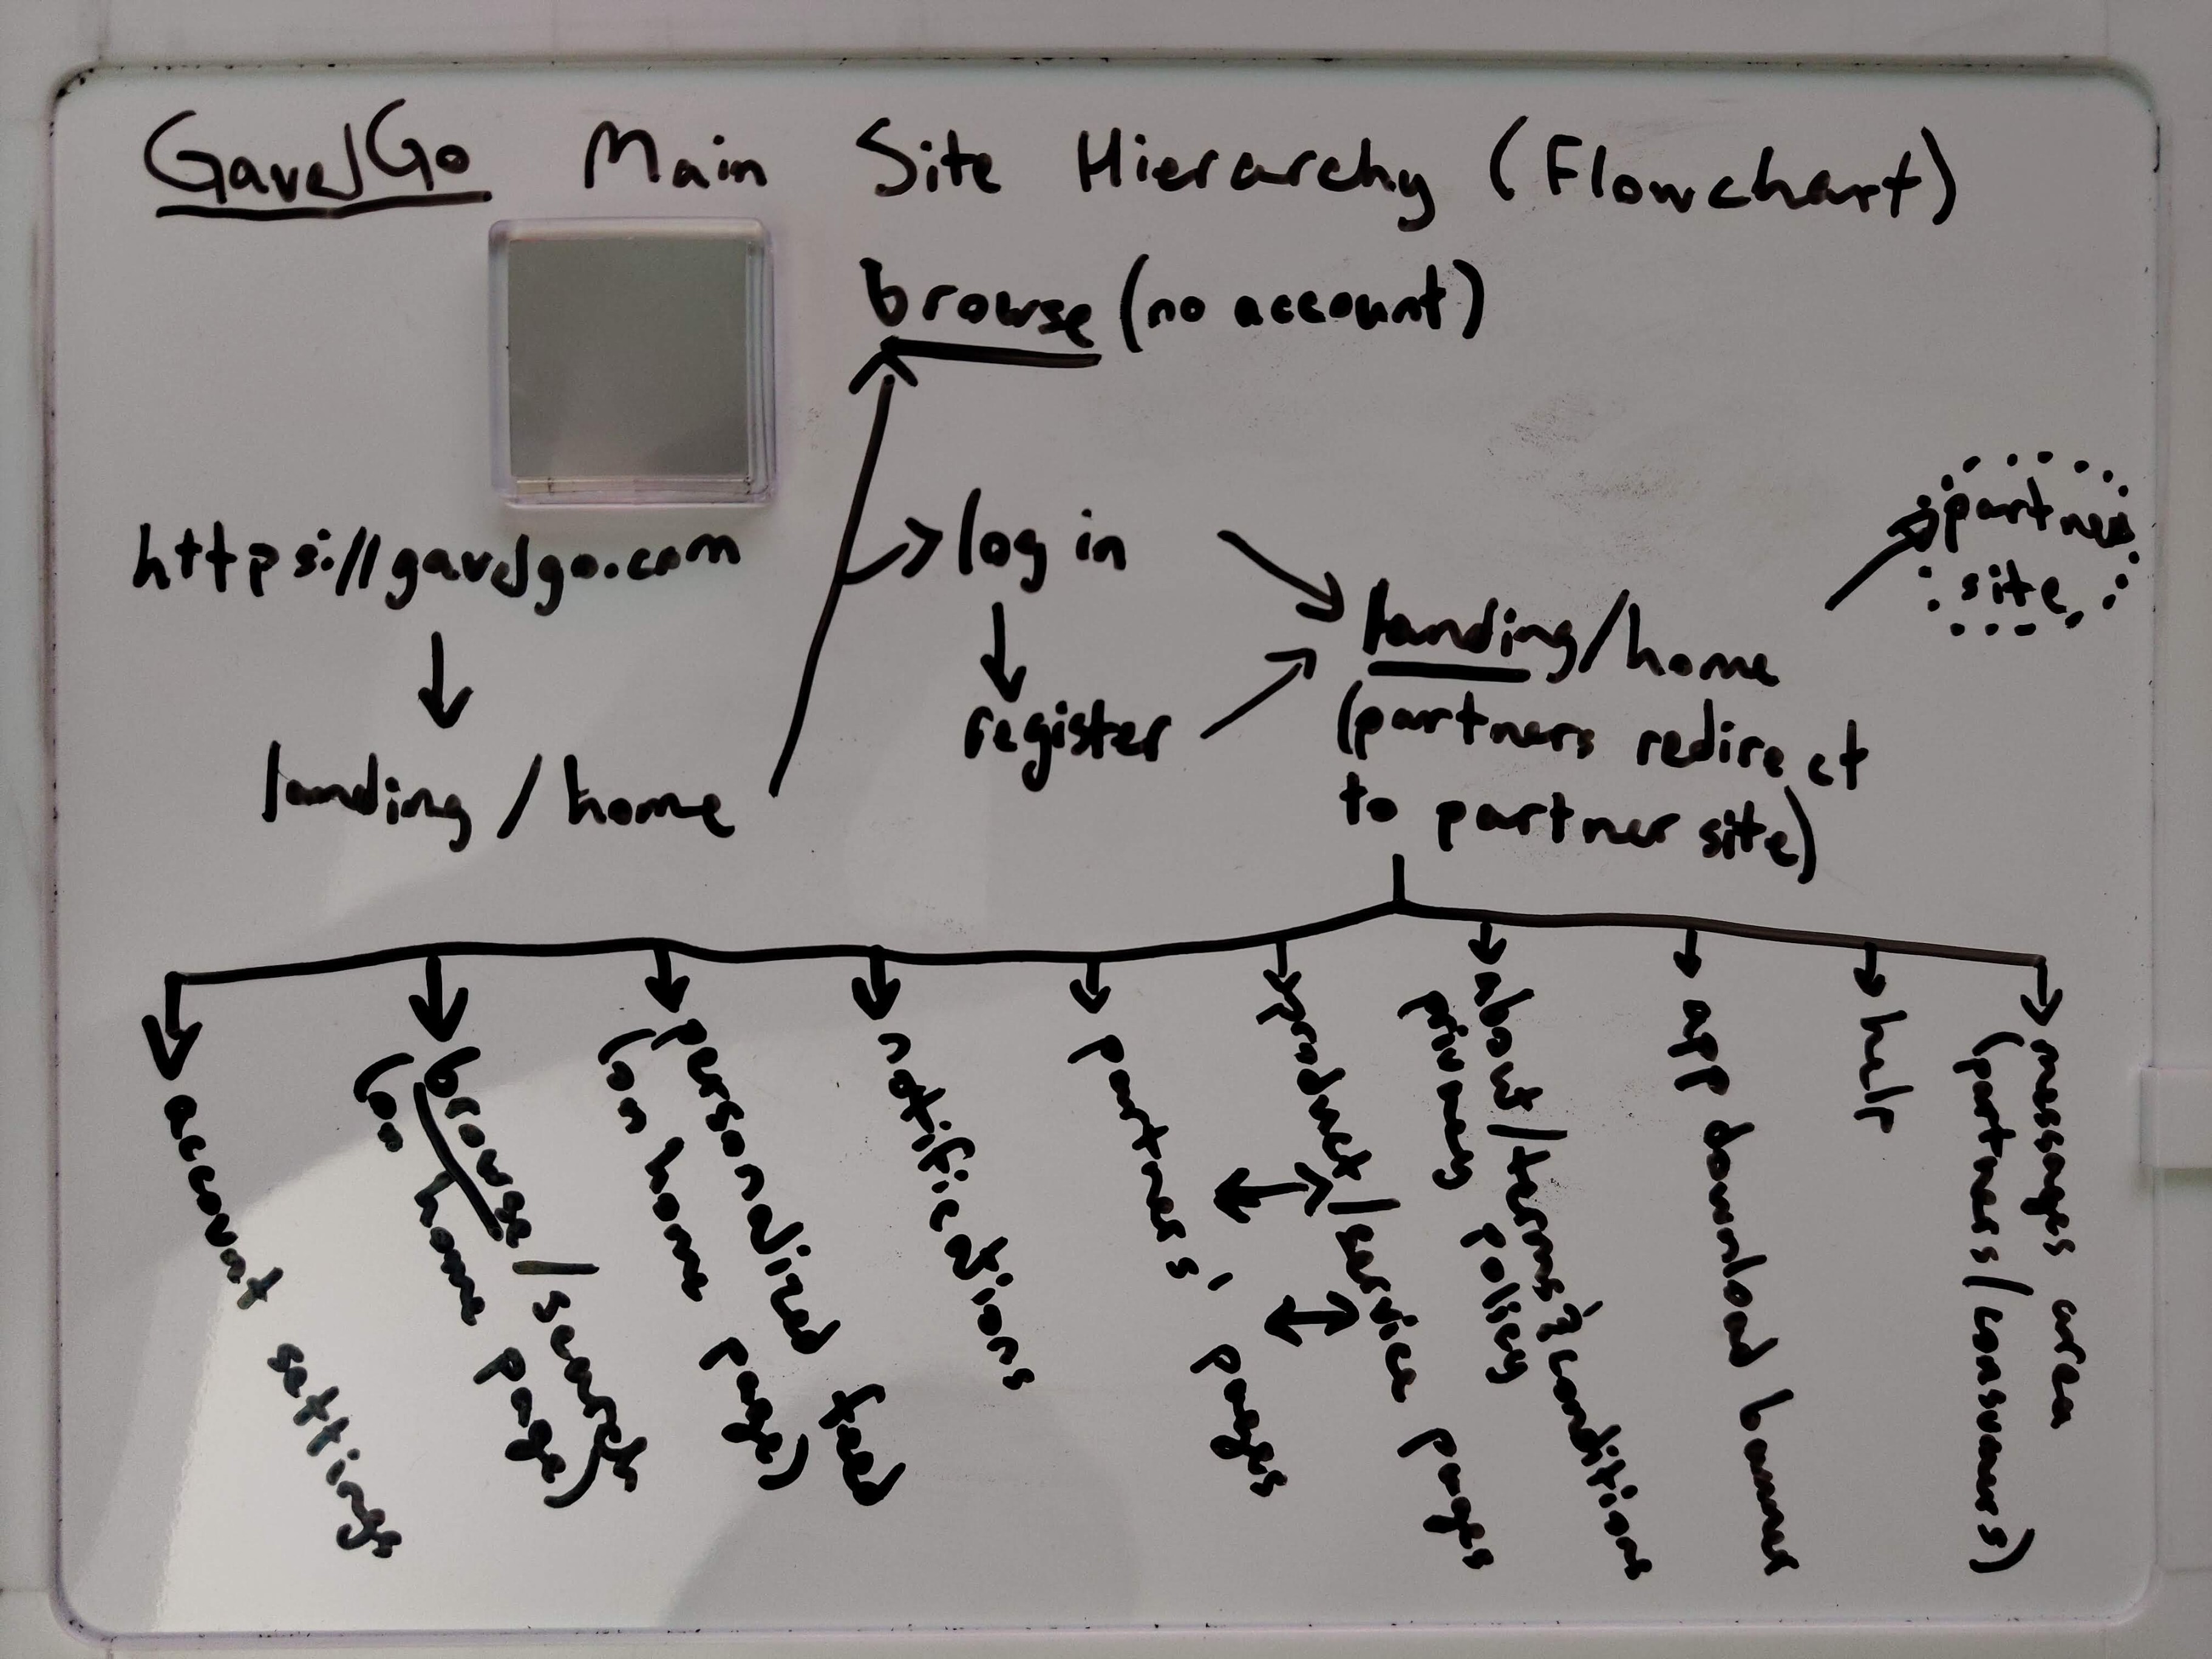 GavelGo Main Site Hierarchy (Flowchart)
browse (no account)
https://gavelgo.com
log in
partner
site
landing/home
register
(partners redirect
to partner site)
landing/home
account settings
browse/search
(on home page)
personalized feed
(on home page)
notifications
partners' pages
product/service pages
about/terms & conditions
privacy policy
app download banner
help
messages area
(partners/consumers)